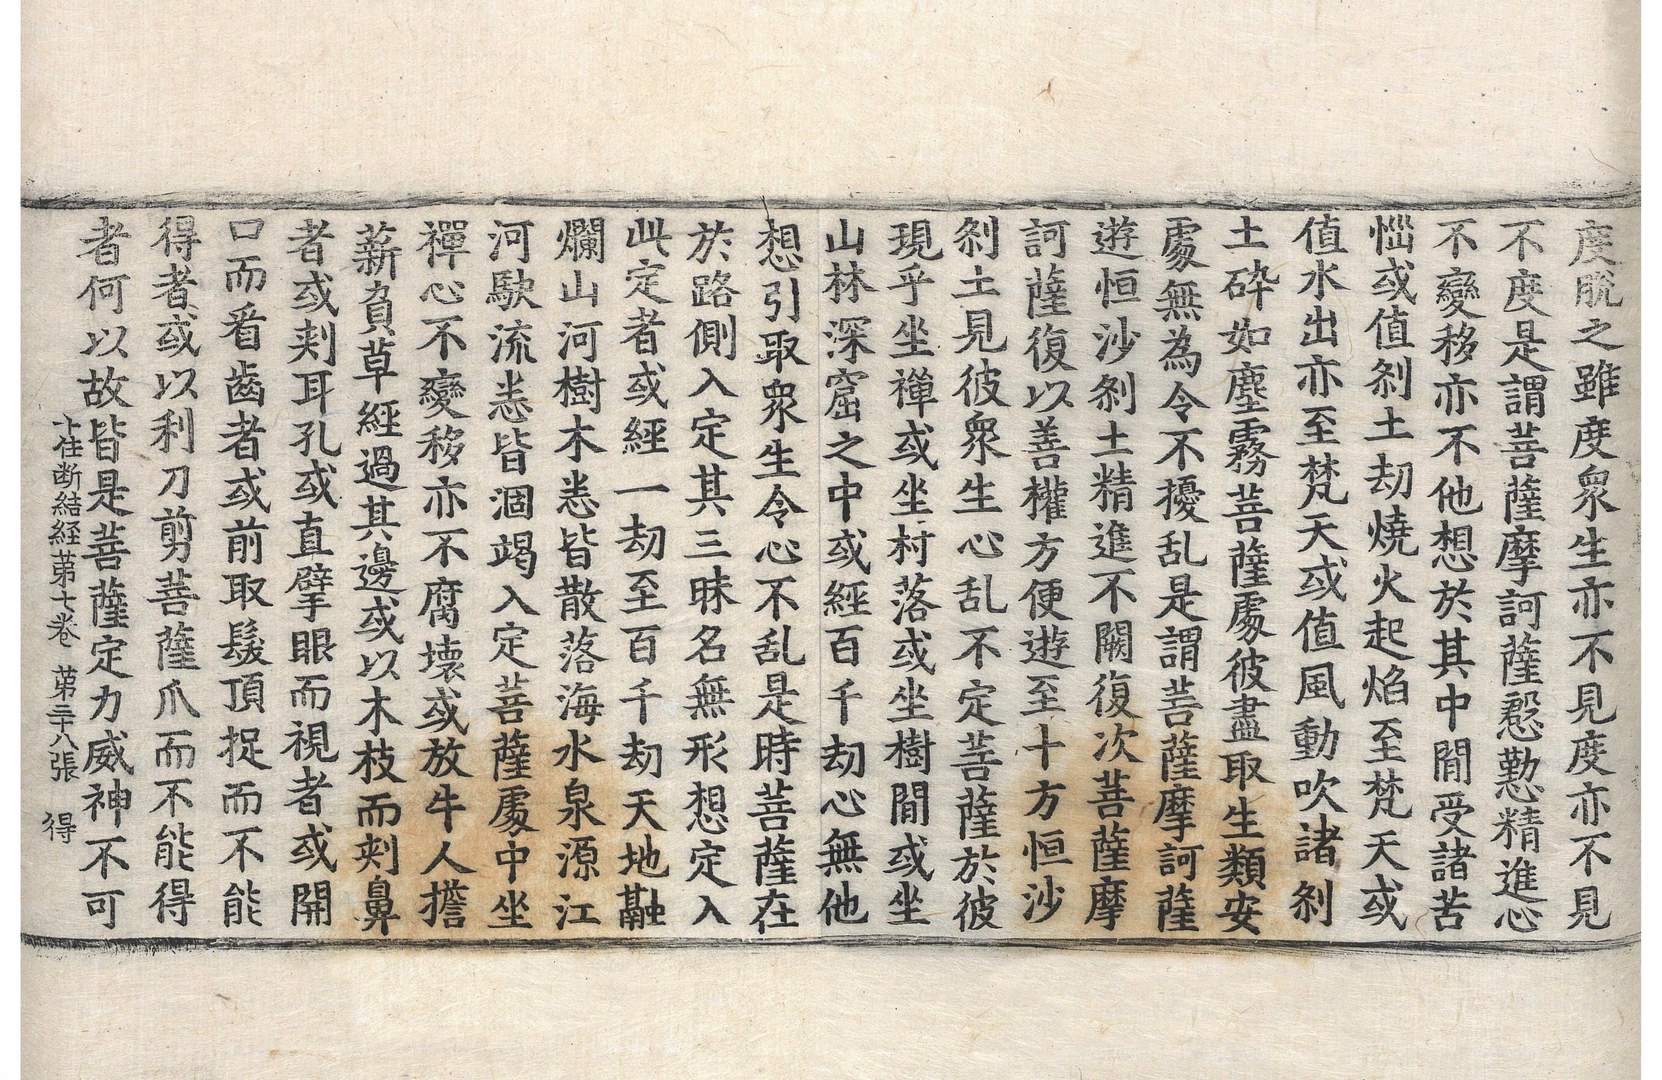 度脫之雖度衆生亦不見度亦不見
不度是謂菩薩摩訶薩慇懃精進心
不變移亦不他想於其中閒受諸苦
惱或值刹土劫燒火起焰至梵天或
值水出亦至梵天或值風動吹諸刹
土碎如塵霧菩薩處彼盡取生類安
處無為令不擾乱是謂菩薩摩訶薩
遊恒沙刹土精進不闕復次菩薩摩
訶薩復以善權方便遊至十方恒沙
刹土見彼衆生心乱不定菩薩於彼
現乎坐禪或坐村落或坐樹閒或坐
山林深窟之中或經百千劫心無他
想引取衆生令心不乱是時菩薩在
於路側入定其三昧名無形想定入
此定者或經一劫至百千劫天地融
爛山河樹木悉皆散落海水泉源江
河駛流悉皆涸竭入定菩薩處中坐
禪心不變移亦不腐壞或放牛人擔
薪負草經過其邊或以木枝而刾鼻
者或刾耳孔或直擘眼而視者或開
口而看齒者或前取髮頂捉而不能
得者或以利刀剪菩薩爪而不能得
者何以故皆是菩薩定力威神不可
十住断結経苐七卷 苐二十八張 得